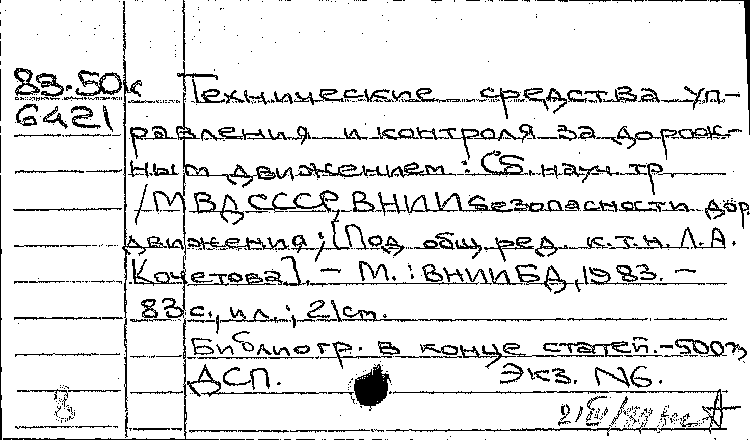 83.50к Технические средства уп-
6421
равления и контроля за дорож-
ным движением: Сб. науч. тр.
/МВД СССР, ВНИИ безопасности дор.
движения; [Под общ. ред. к.т.н. Л.А.
Кочетова]. - М.: ВНИИБД, 1983. -
83 с., ил.; 21 см.
Библиогр. в конце статей. - 500 э
ДСП. Экз. N6.
8